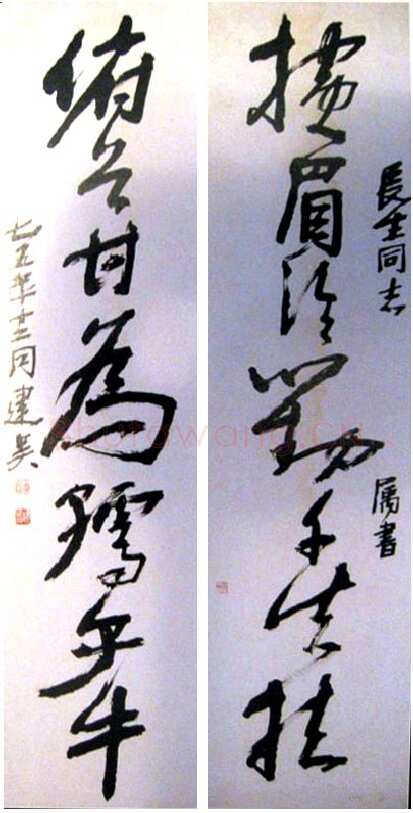 長生同志
属書
横眉冷對千夫指
俯首甘為孺子牛
七五年十二月建吳